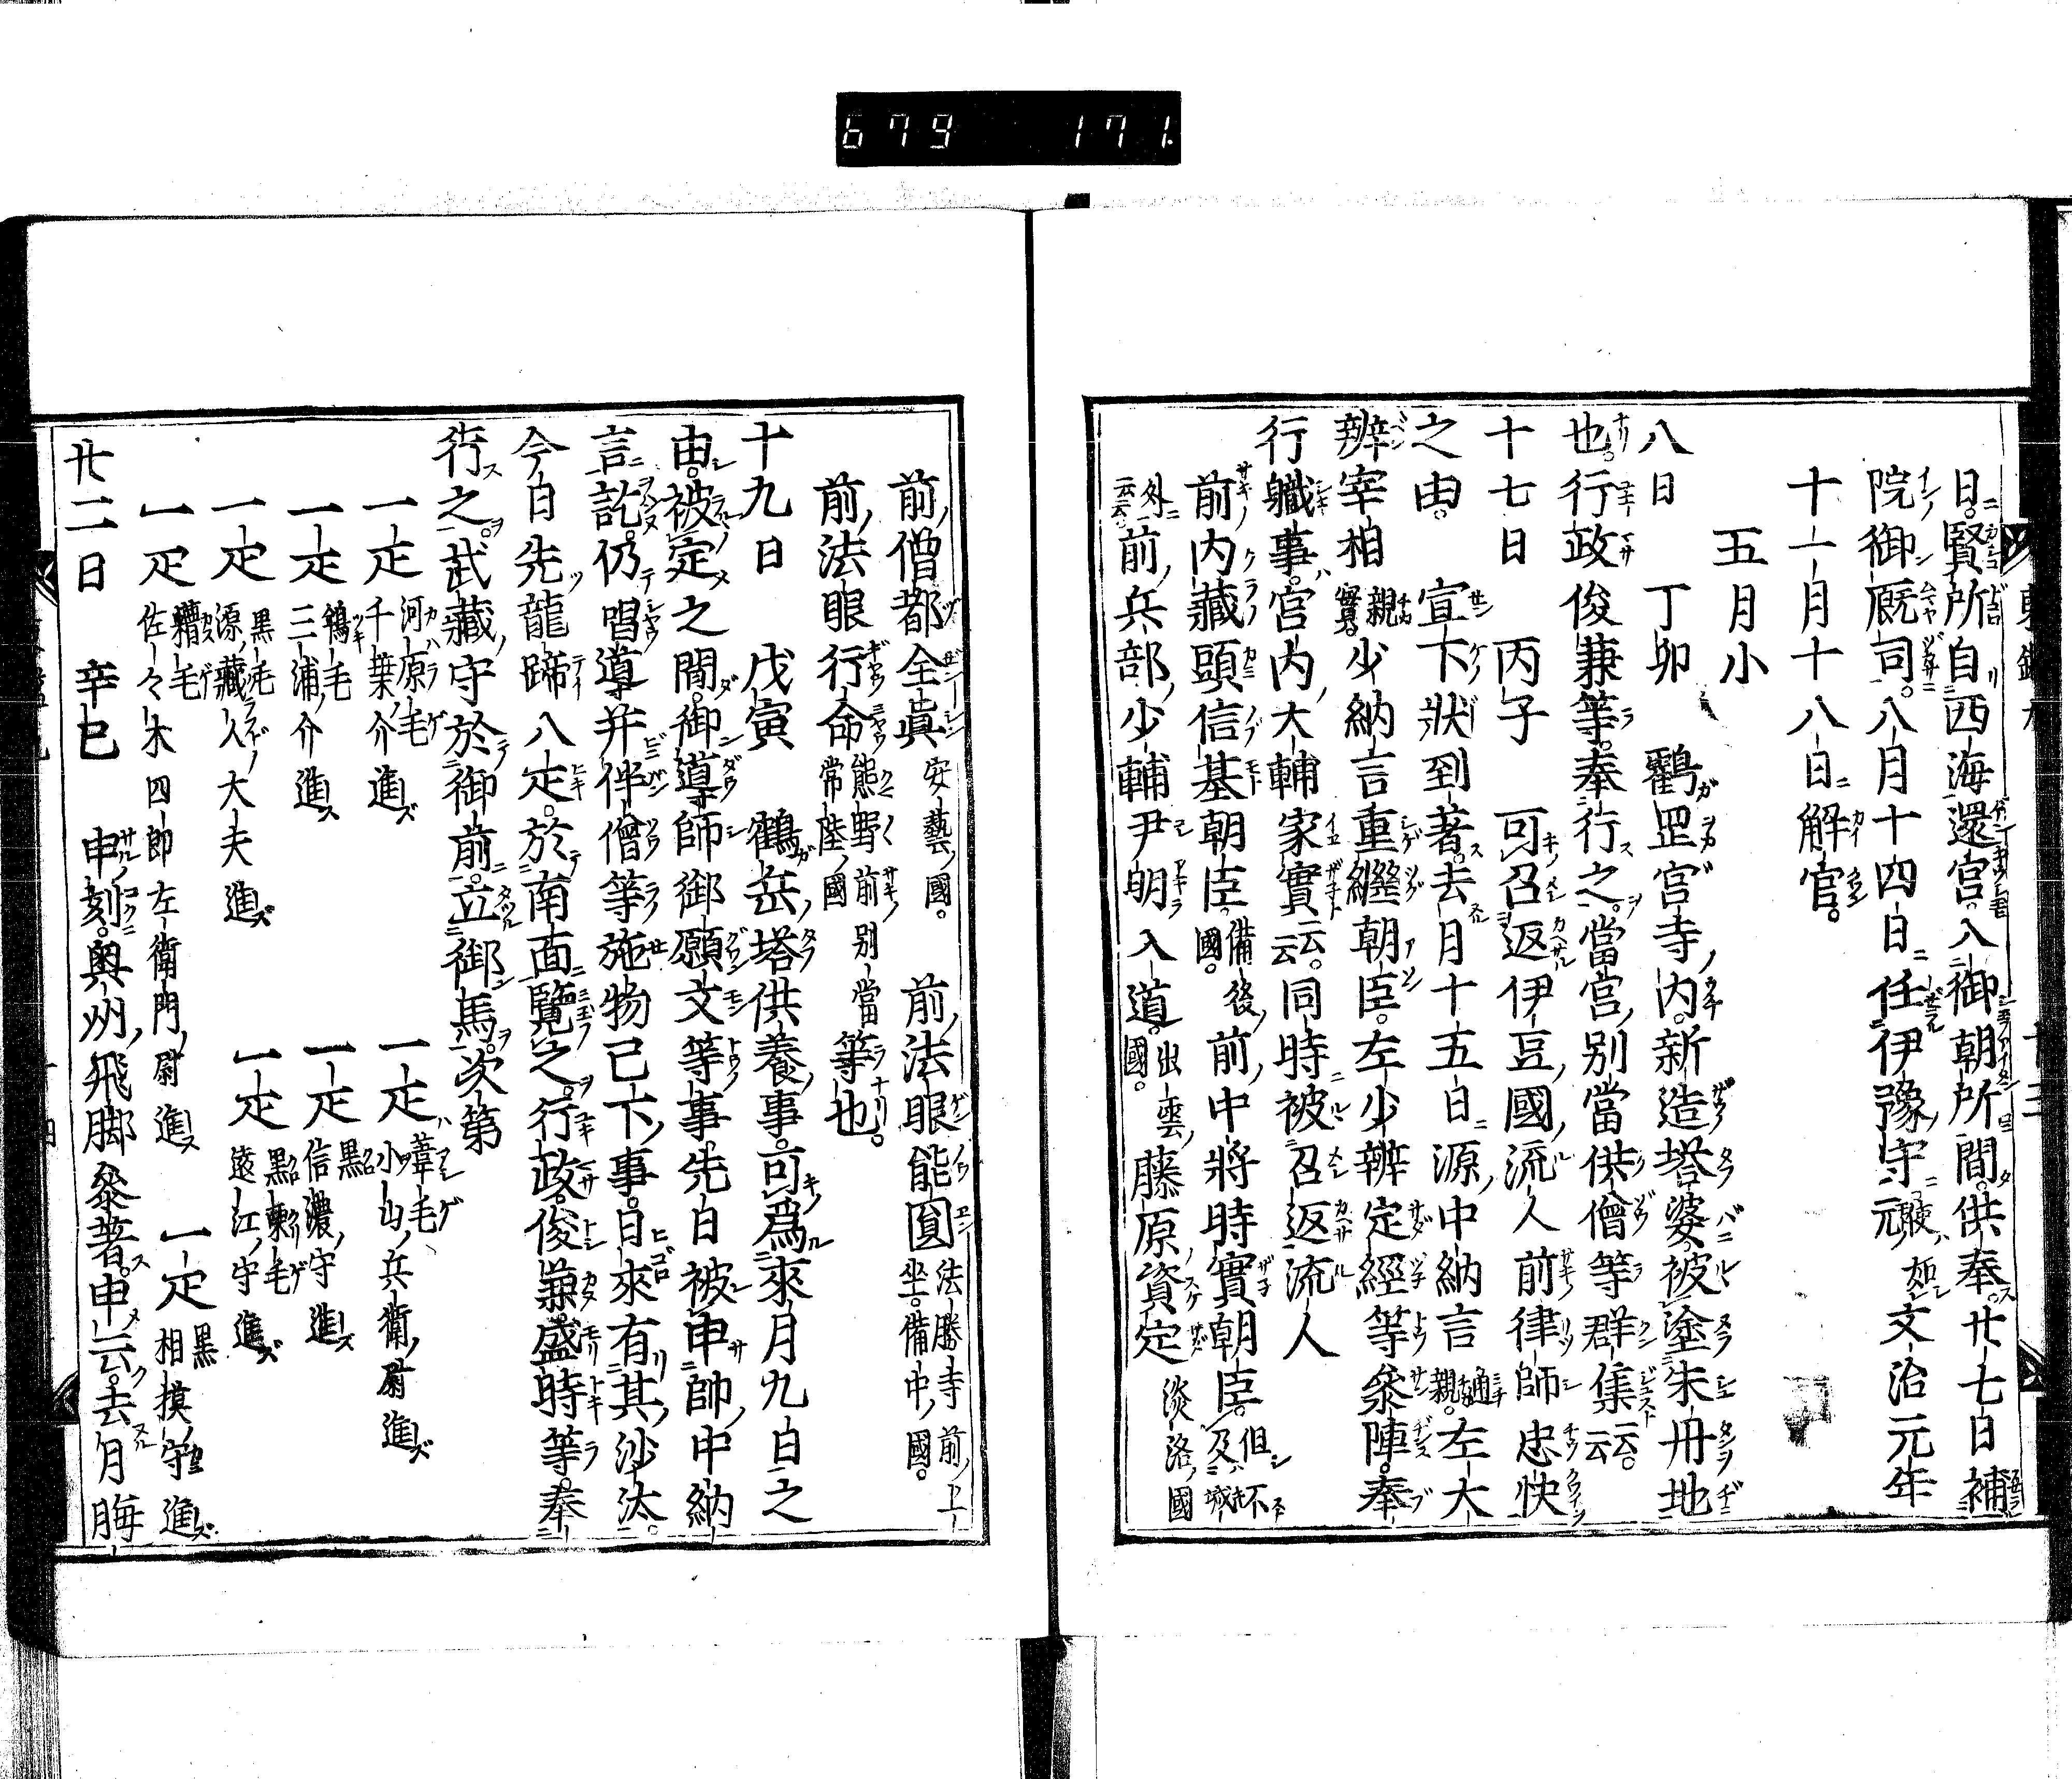 679 171.
日。賢所自西海還宮。入御朝所間。供奉。廿七日補
院御厩司。八月十四日任伊豫守。使如元。文治元年
十一月十八日解官。
五月小
八日 丁卯 鸖罡宮寺内。新造塔婆。被塗朱丹地
也。行政俊兼等。奉行之。當宮別當供僧等群集云云。
十七日 丙子 可召返伊豆國流人前律師忠快
之由。 宣下狀到著。去月十五日。源中納言通親。左大
辨宰相親宗。少納言重繼朝臣。左少辨定經等參陣。奉
行軄事。宮内大輔家實云云。同時被召返流人
前内藏頭信基朝臣。備後國。 前中將時實朝臣。但不及
外云云。前兵部少輔尹明入道。出雲國。 藤原資定淡洛國
前僧都全眞安藝國。 前法眼能圓法勝寺前上坐。備中國。
前法眼行命熊野前別當常陸國等也。
十九日 戊寅 鶴岳塔供養事。可爲來月九日之
由。被定之間。御導師御願文等事先日被申帥中納
言訖。仍唱導并伴僧等施物已下事。日來有其沙汰。
今日先龍蹄八疋。於南面覽之。行政。俊兼。盛時等。奉
行之。武藏守於御前。立御馬。次第
一疋河原毛千葉介進 一疋葦毛小山兵衛尉進
一疋鴾毛三浦介進 一疋黒信濃守進
一疋黒毛源藏人大夫進 一疋黒鵇毛遠江守進
一疋糟毛佐々木四郎左衛門尉進 一疋黒相摸守進
廿二日 辛巳 申刻。奥州飛脚參著。申云。去月晦